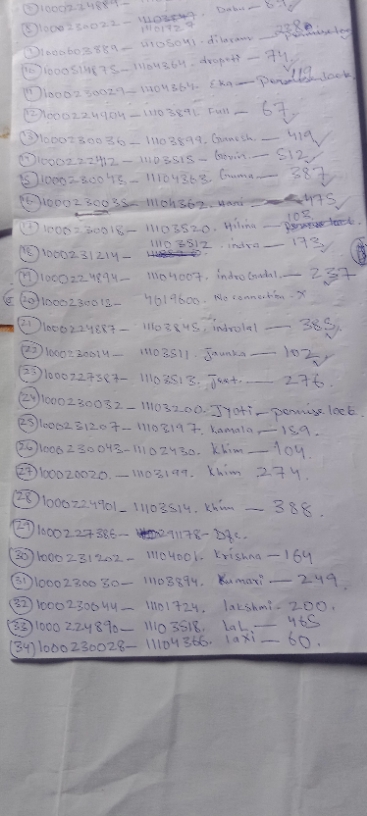 1000224889 - Dabu - 89
⑧ 1000230022 - 11101727
⑨ 1000603889 - 11105041 - dilaram -
⑩ 1000514875 - 11104364 - dropati - 74
⑪ 1000230029 - 11104364. Eka - 119
⑫ 1000224904 - 1103891 Full - 67 ✓
⑬ 1000230036 - 11103899. Ganesh. - 419 ✓
⑭ 1000222912 - 11103515 - Govin - 512 ✓
⑮ 1000230045 - 11104368. Guma - 387 ✓
⑯ 1000230035 - 11104362. Hani - 475 ✓
⑰ 1000230018 - 11103520. Hilina - 103
⑱ 1000231214 - 11103512. indra - 173 ✓
⑲ 1000224894 - 11104007. indra Gadal. - 237
⑳ 1000230013 - 4619600. No connection - X
㉑ 1000224887 - 11103845, indralal - 385 ✓
㉒ 1000230014 - 11103511. Jaunka - 102 ✓
㉓ 1000227587 - 11103513. - 276.
㉔ 1000230032 - 11103200. Jyoti - permise lock.
㉕ 1000231207 - 11103197. kamala - 159.
㉖ 1000230043 - 11102430. khim - 104.
㉗ 100020020. - 11103199. khim 274.
㉘ 1000224901 - 11103514. khim - 388.
㉙ 1000227386 - 291178 - D/c.
㉚ 1000231202 - 11104001. krishna - 164
㉛ 1000230030 - 11103894. Kumari - 249.
㉜ 1000230044 - 11101724. lakshmi - 200.
㉝ 1000224890 - 11103518. LaL - 465
(34) 1000230028 - 11104366. laxi - 60.